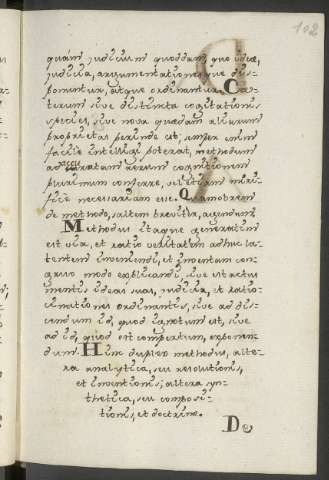 102
quàm judicium quoddam, quo ideæ,
judicia, argumentationesque dis-
ponuntur, atque ordinantur. Cæ-
terum sive distincta cogitationis
species, sive nova quædam aliarum
proprietas perinde est, semper enim
facile intelligi poterat, methodum
ad accuratam rerum cognitionem
plurimum conferre, vel etiam miri-
fice necessariam esse. Quamobrem
de methodo, saltem breviter, agendum.
Methodus itaque generatim
est via, et ratio veritatem adhuc la-
tentem inveniendi, et inventam con-
gruo modo explicandi, sive est actus
mentis ideas suas, judicia, et ratio-
cinationes ordinantis, sive ad dis-
cendum id, quod ignotum est, sive
ad id, quod est compertum, exponen-
dum. Hinc duplex methodus, alte-
ra analytica, seu resolutionis,
et inventionis; altera syn-
thetica, seu composi-
tionis, et doctrinæ.
De